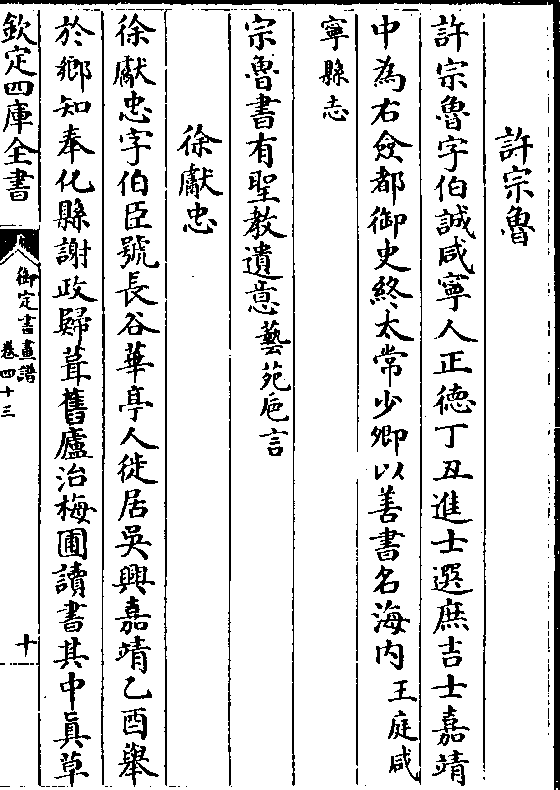 許宗魯
許宗魯字伯誠咸寧人正德丁丑進士選庶吉士嘉靖
中為右僉都御史終太常少卿以善書名海内王庭咸
寧縣志
宗魯書有聖教遺意藝苑巵言
徐獻忠
徐獻忠字伯臣號長谷華亭人徙居吳興嘉靖乙酉舉
於鄉知奉化縣謝政歸葺舊廬治梅圃讀書其中真草
欽定四庫全書
御定書畫譜
卷四十三
十